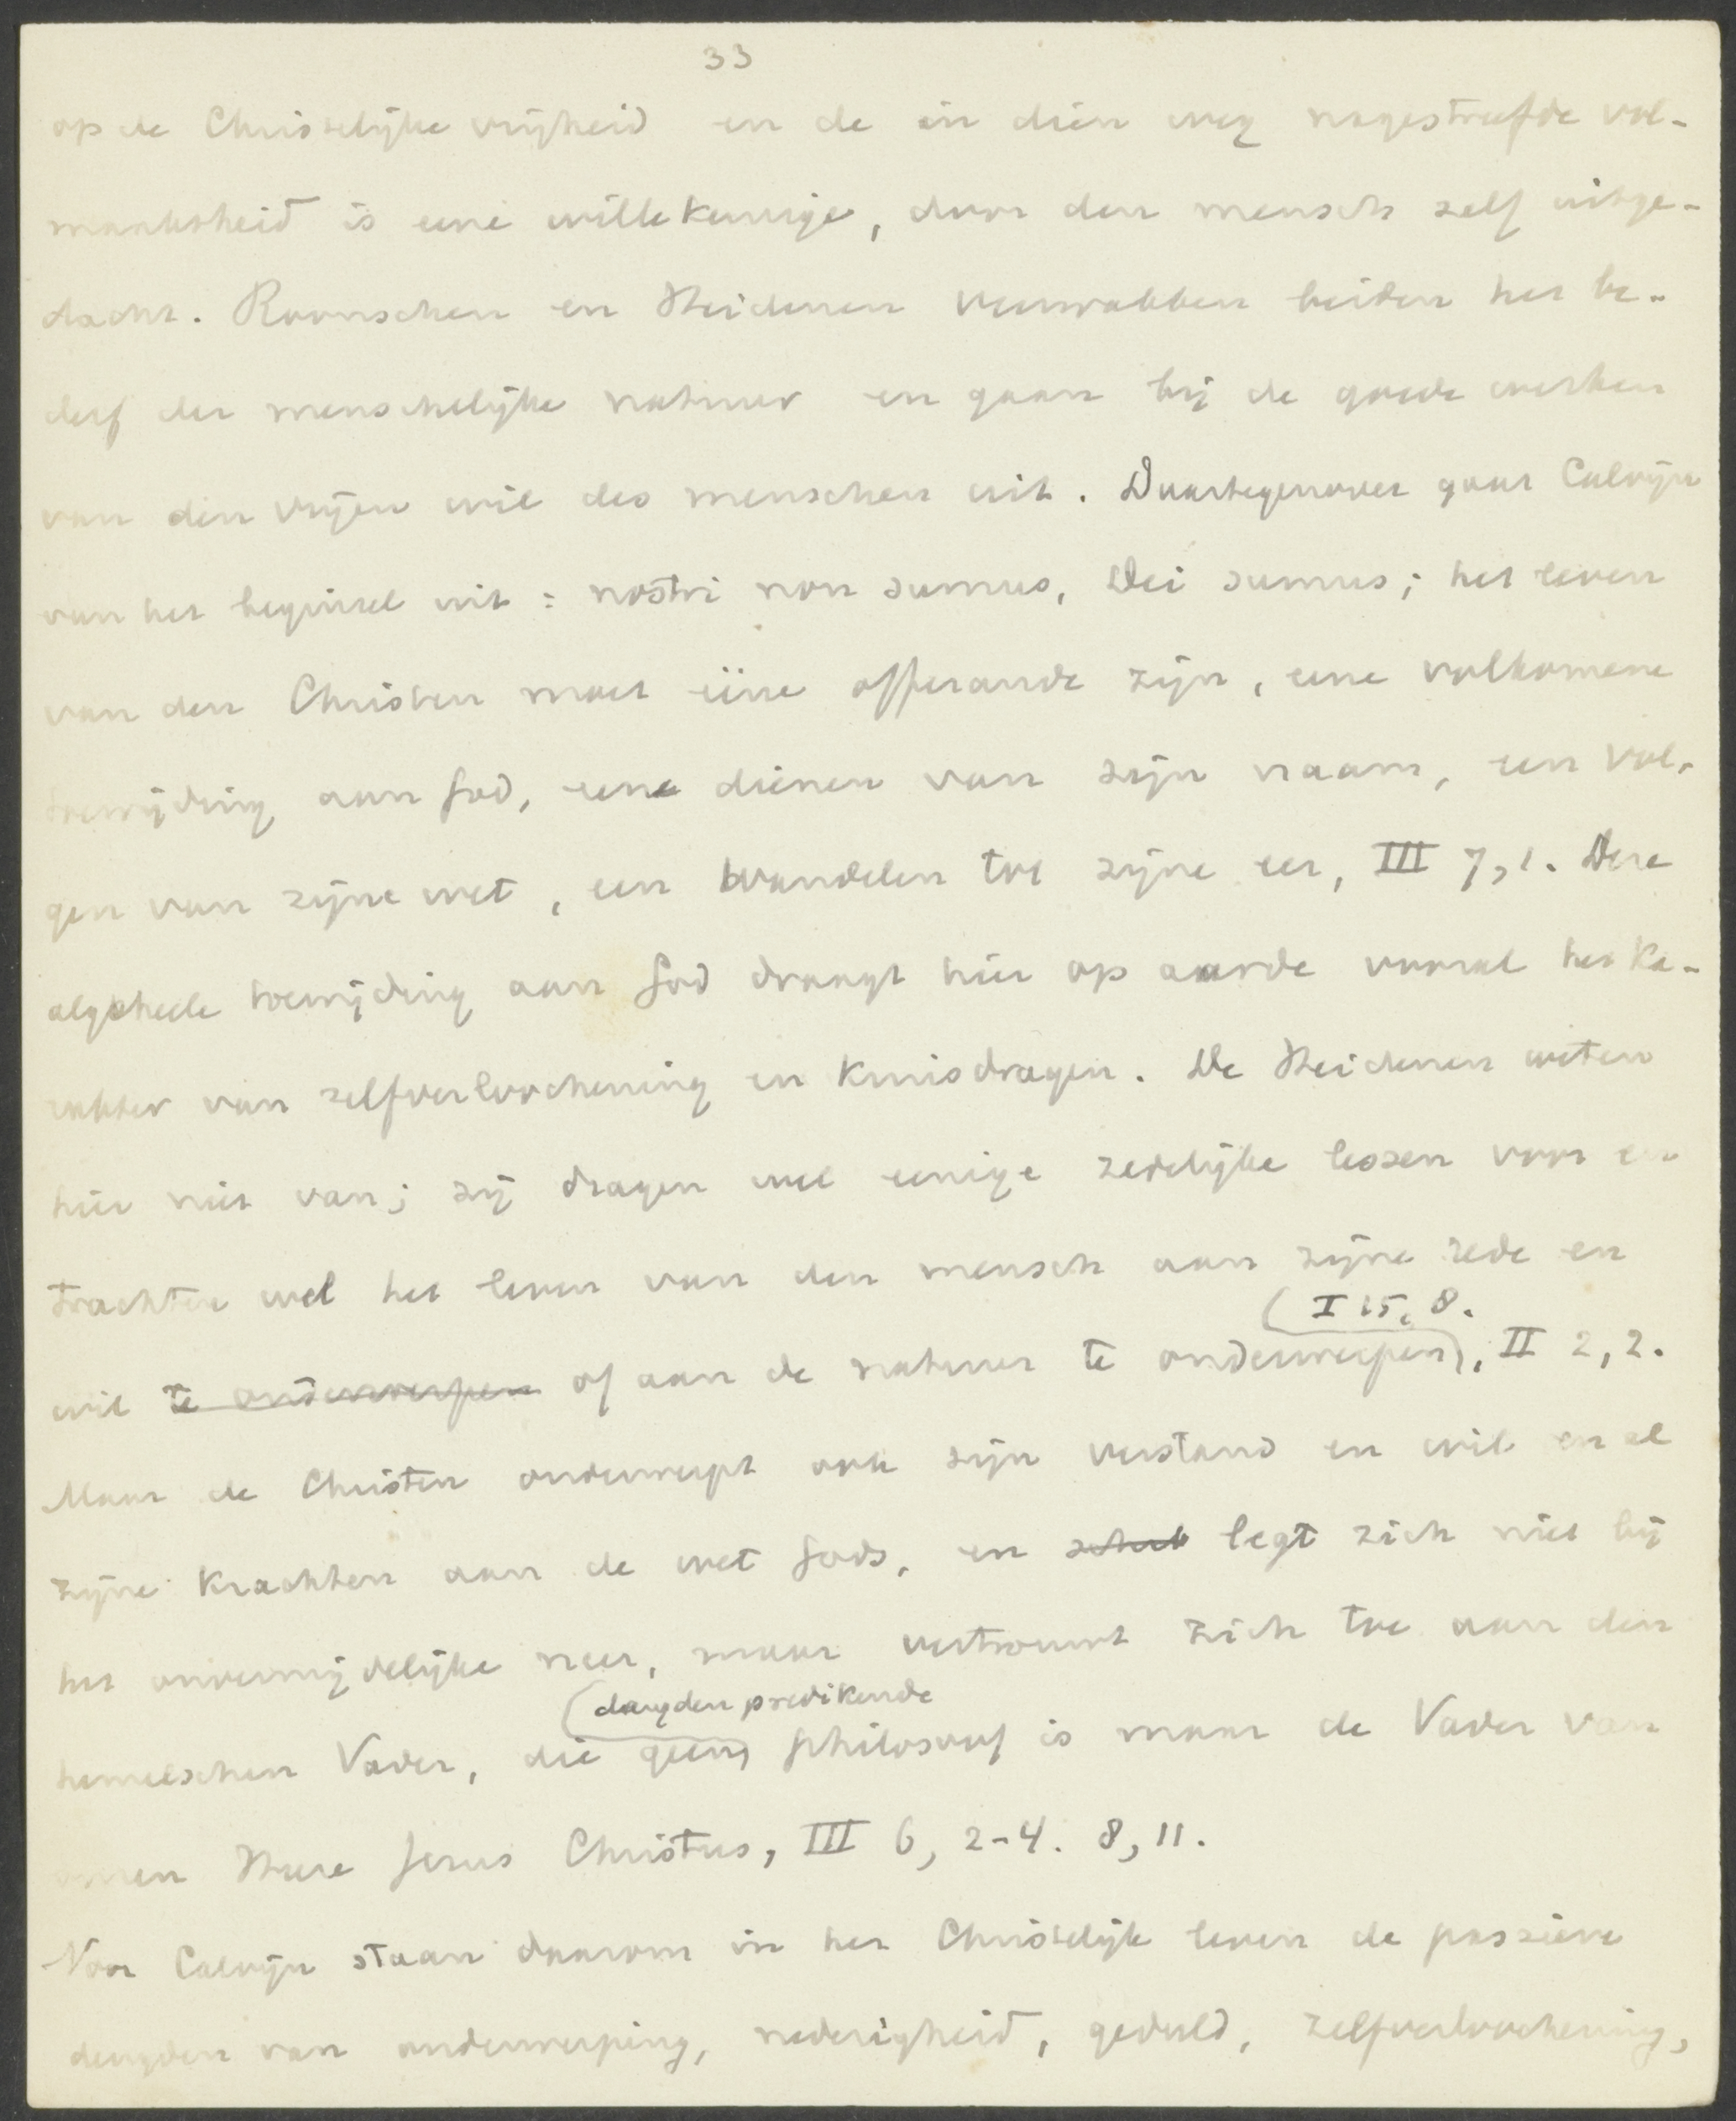 33
op de Christelijke vrijheid en de in dien weg nagestreefde vol-
maaktheid is eene willekeurige, door den mensch zelf uitge-
dacht. Roomschen en Heidenen verzwakken beiden het be-
derf der menschelijke natuur en gaan bij de goede werken
van den vrijen wil des menschen uit. Daartegenover gaat Calvijn
van het beginsel uit: nostri non sumus, Dei sumus; het leven
van den Christen moet ééne offerande zijn, eene volkomene
toewijding aan God, eene dienen van zijn naam, een vol-
gen van zijne wet, een wandelen tot zijne eer, III 7,1. Deze
algeheele toewijding aan God draagt hier op aarde vooral het ka-
rakter van zelfverloochening en kruisdragen. De Heidenen weten
hier niet van; zij dragen wel eenige zedelijke lessen voor en
trachten wel het leven van den mensch aan zijne rede en
(I 15, 8.
wil te onderwerpen of aan de natuur te onderwerpen), II 2,2.
Maar de Christen onderwerpt ook zijn verstand en wil en al
zijne krachten aan de wet Gods, en legt zich niet bij
het onvermijdelijke neer, maar vertrouwt zich toe aan den
(deugden predikende
hemelschen Vader, die geen) philosoof is maar de Vader van
onzen Heere Jezus Christus, III 6, 2-4. 8, 11.
Voor Calvijn staan daarom in het Christelijk leven de passieve
deugden van onderwerping, nederigheid, geduld, zelfverloochening,